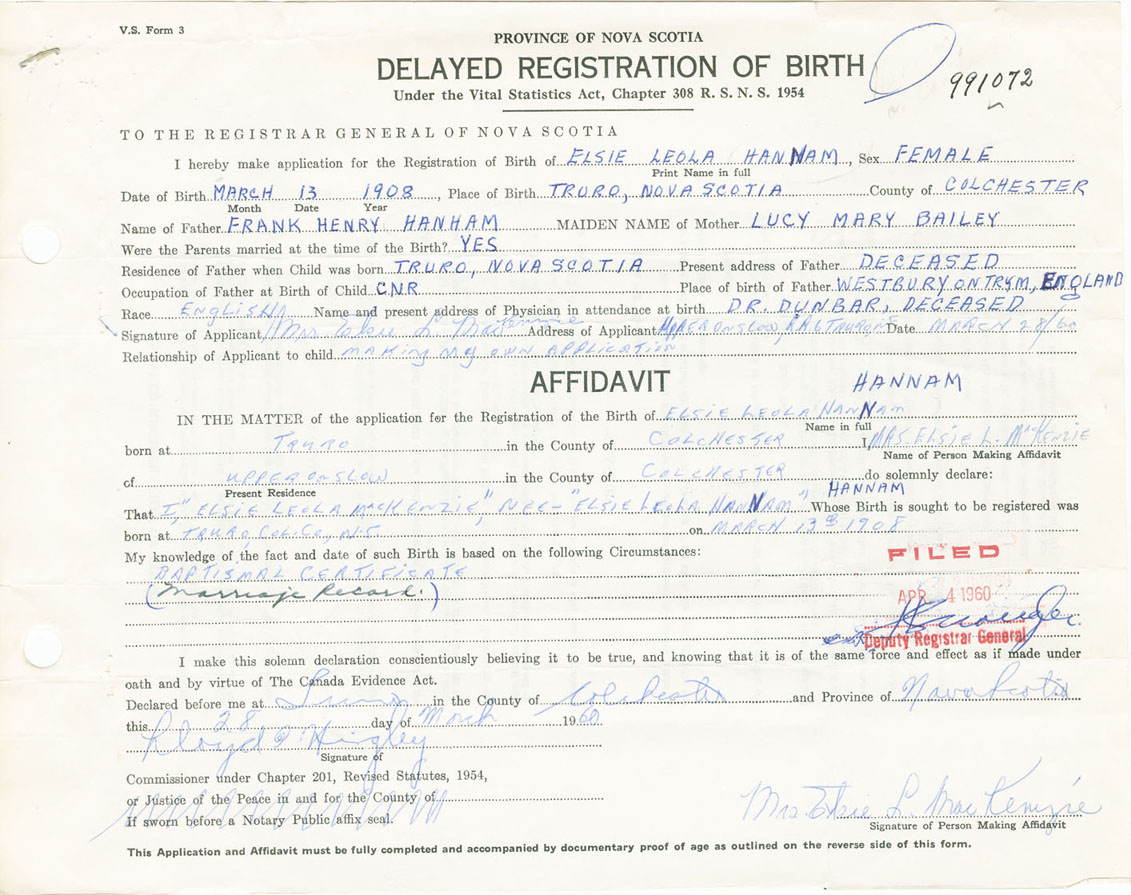 V.S. Form 3
PROVINCE OF NOVA SCOTIA
DELAYED REGISTRATION OF BIRTH
991072
Under the Vital Statistics Act, Chapter 308 R. S. N. S. 1954
TO THE REGISTRAR GENERAL OF NOVA SCOTIA
I hereby make application for the Registration of Birth of ELSIE LEOLA HANNAM, Sex FEMALE
Print Name in full
Date of Birth MARCH 13 1908, Place of Birth TRURO, NOVA SCOTIA County of COLCHESTER
Month Date Year
Name of Father FRANK HENRY HANHAM MAIDEN NAME of Mother LUCY MARY BAILEY
Were the Parents married at the time of the Birth? YES
Residence of Father when Child was born TRURO, NOVA SCOTIA Present address of Father DECEASED
Occupation of Father at Birth of Child CNR Place of birth of Father WESTBURY ON TRYM, ENGLAND
Race ENGLISH Name and present address of Physician in attendance at birth DR. DUNBAR, DECEASED
Signature of Applicant Mrs Elsie L. MacKenzie Address of Applicant UPPER ONSLOW, Date MARCH 28/60
Relationship of Applicant to child MAKING MY OWN APPLICATION
AFFIDAVIT
HANNAM
IN THE MATTER of the application for the Registration of the Birth of ELSIE LEOLA HANNAM
Name in full
born at TRURO in the County of COLCHESTER I, MRS. ELSIE L. MacKENZIE
Name of Person Making Affidavit
of UPPER ONSLOW in the County of COLCHESTER do solemnly declare:
Present Residence
HANNAM
That I, "ELSIE LEOLA MacKENZIE," NEE- "ELSIE LEOLA HANNAM" Whose Birth is sought to be registered was
born at TRURO, COL. CO., N.S. on MARCH 13th 1908
My knowledge of the fact and date of such Birth is based on the following Circumstances:
FILED
BAPTISMAL CERTIFICATE
(Marriage Record.)
APR 4 1960
Deputy Registrar General
I make this solemn declaration conscientiously believing it to be true, and knowing that it is of the same force and effect as if made under
oath and by virtue of The Canada Evidence Act.
Declared before me at Truro in the County of Colchester and Province of Nova Scotia
this 28 day of March 1960
Lloyd
Signature of
Commissioner under Chapter 201, Revised Statutes, 1954,
or Justice of the Peace in and for the County of
If sworn before a Notary Public affix seal.
Mrs. Elsie L. MacKenzie
Signature of Person Making Affidavit
This Application and Affidavit must be fully completed and accompanied by documentary proof of age as outlined on the reverse side of this form.